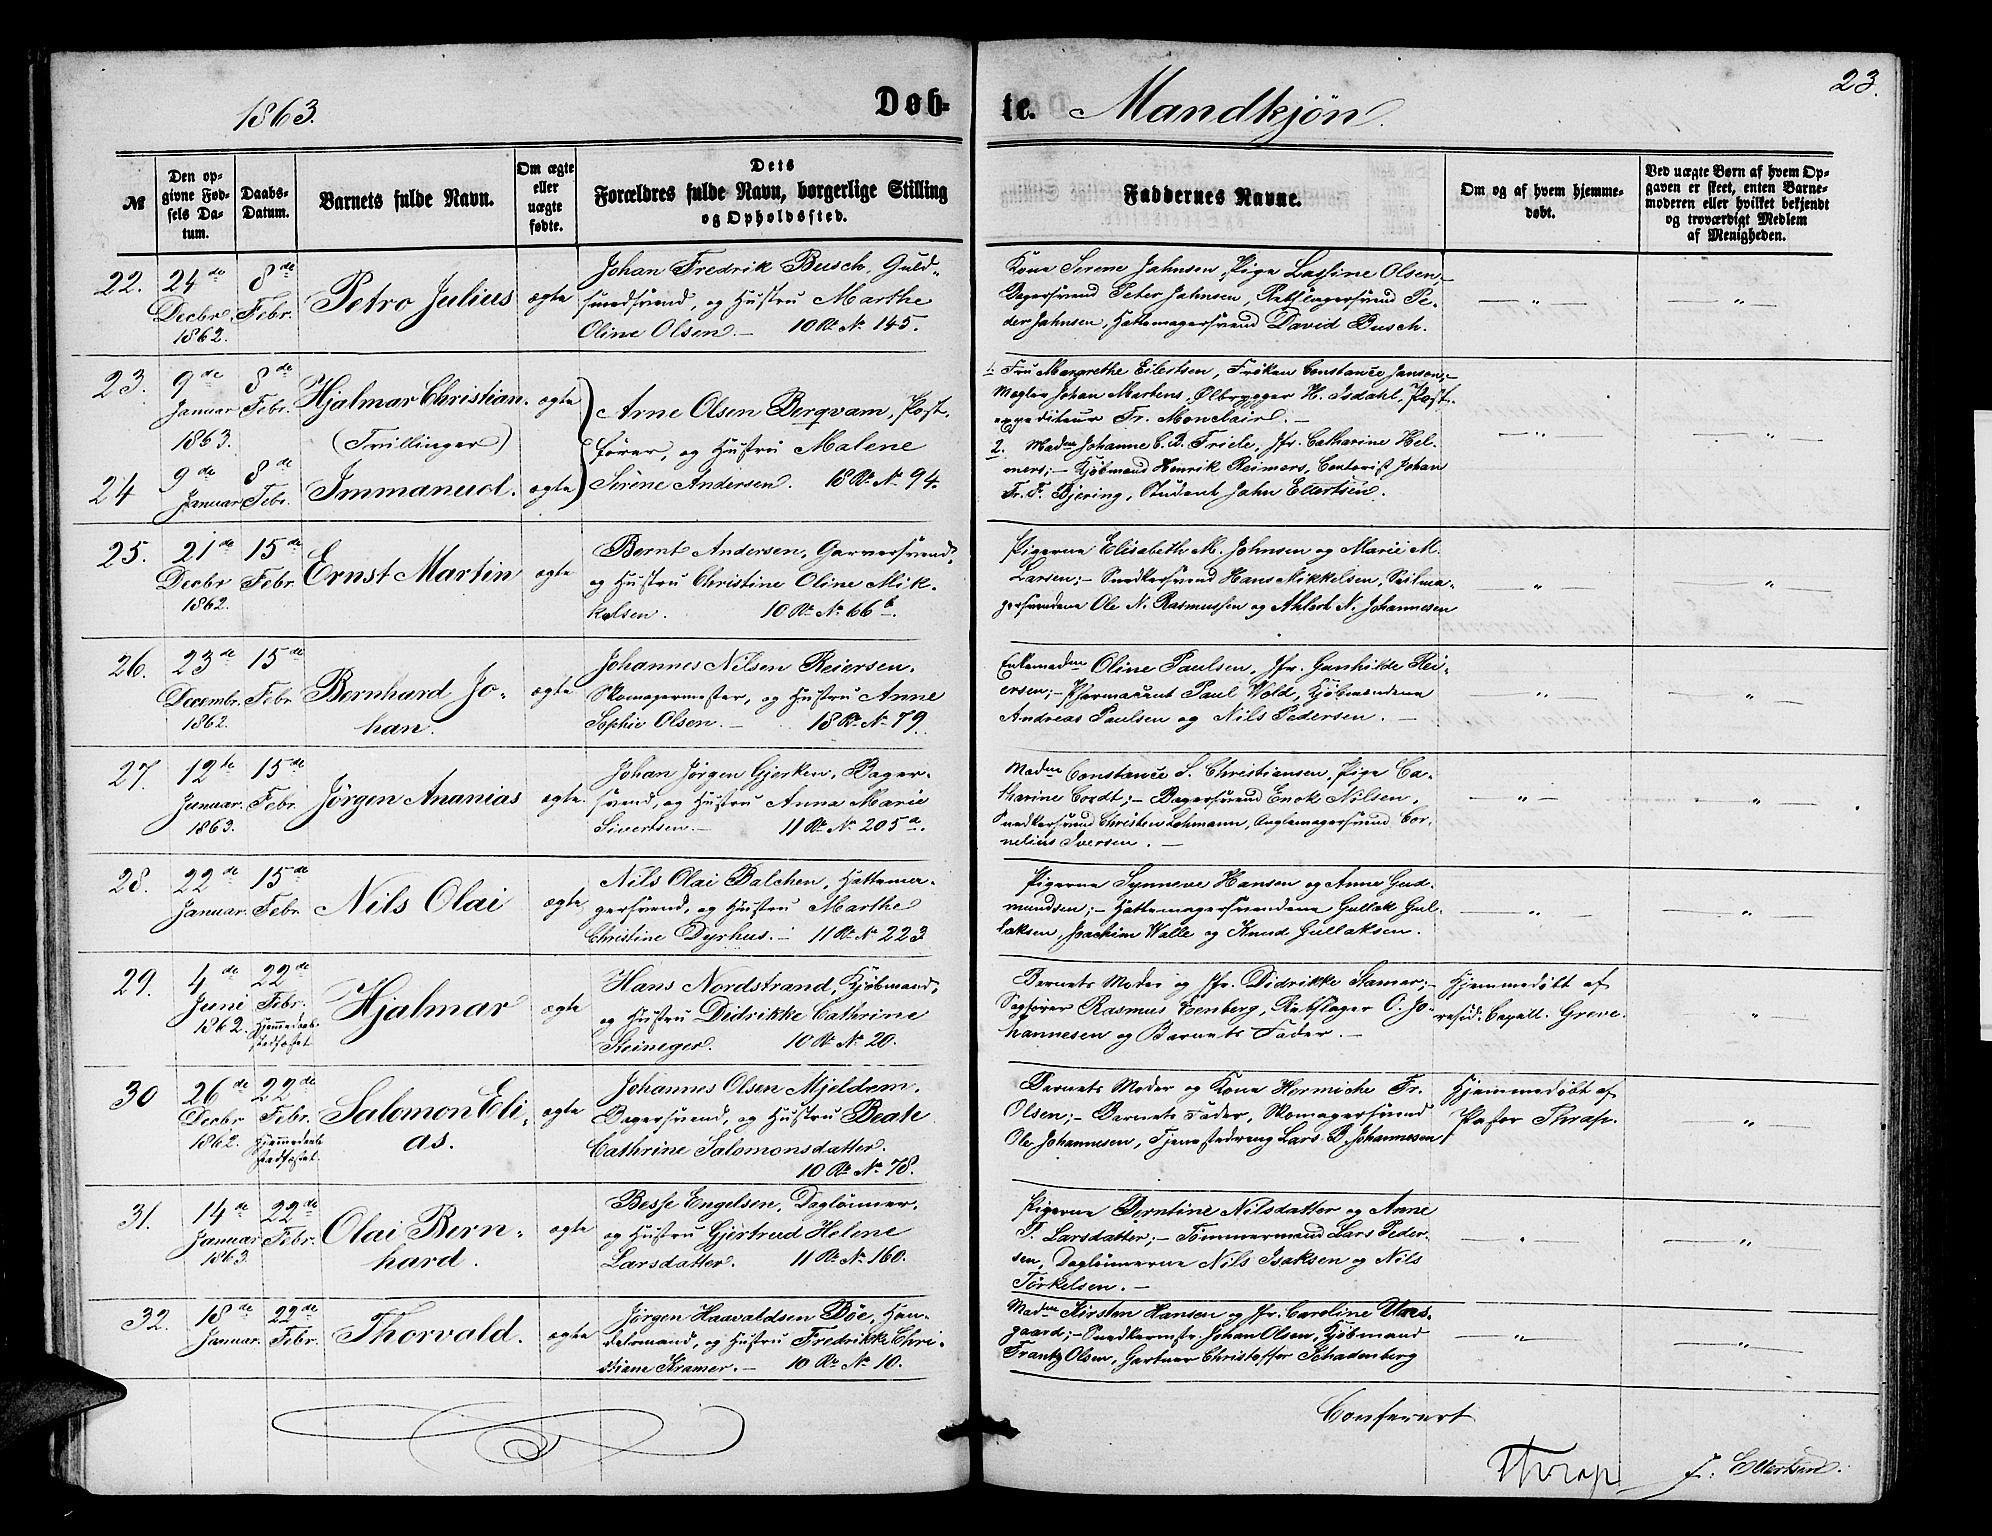 23.
1863.
Døb-
te. Mandkjøn.
№
Den op-
givne Fød-
sels Da-
tum.
Daabs-
Datum.
Barnets fulde Navn.
Om ægte
eller
uægte
fødte.
Dets
Forældres fulde Navn, borgerlige Stilling
og Opholdssted.
Faddernes Navne.
Om og af hvem hjemme-
døbt.
Ved uægte Børn af hvem Op-
gaven er skeet, enten Barne-
moderen eller hvilket bekjendt
og troværdigt Medlem
af Menigheden.
22. 24de Decbr. 1862. 8de Febr. Petro Julius ægte
Johan Fredrik Busch, Guld-
smedsvend, og Hustru Marthe
Oline Olsen. – 10 Rd. No 145.
Kone Serene Jahnsen, Pige Lassine Olsen, –
Bagersvend Peter Jahnsen, Rebslagersvend Pe-
der Jahnsen, Hattemagersvend David Busch.
— „ — — „ —
23. 9de Januar 1863. 8de Febr. Hjalmar Christian. ægte
(Trillinger)
24 9de Januar 8de Febr. Immanuel. ægte
Arne Olsen Bergvam, Post-
fører, og Hustru Malene
Serene Andersen. 18 Rd. No 94.
1. Fru Margrethe Eilertsen, Frøken Constance Janson, –
Mægler Johan Martens, Ølbrygger H. Isdahl, Post-
expediteur Fr. Monclair. –
2. Maden Johanne C. D. Friele, Jfr. Catharine Hel-
mers; – Kjøbmand Henrik Reimers, Contorist Johan
Fr. F. Bjering, Student Jahn Ellertsen.
— „ — — „ —
25. 21de Decbr 1862. 15de Febr. Ernst Martin ægte
Bernt Andersen, Garversvend,
og Hustru Christine Oline Mik-
kelsen. 10 Rd. No 66b.
Pigerne Elisabeth M. Johnsen og Marie M.
Larsen; – Snedkersvend Hans Mikkelsen, Seilma-
gersvendene Ole N. Rasmussen og Ahlert N. Johannesen
— „ — — „ —
26. 23de Decembr. 1862. 15de Febr. Bernhard Jo-
han. ægte
Johannes Nilsen Reiersen,
Skomagermester, og Hustru Anne
Sophie Olsen. – 18 Rd. No 79.
Enkemaden Oline Paulsen, Jfr. Gunhilde Rei-
ersen; – Pharmaceut Paul Wold, Kjøbmændene
Andreas Paulsen og Nils Pedersen. –
— „ — — „ —
27. 12te Januar. 1863. 15de Febr. Jørgen Ananias ægte.
Johan Jørgen Gjerken, Bager-
svend, og Hustru Anna Marie
Sivertsen. – 11 Rd. No 205a.
Maden Constance S. Christiansen, Pige Ca-
tharine Cordt; – Bagersvend Enok Nilsen,
Snedkersvend Christen Lohmann, Anglemagersvend Cor-
nelius Iversen. –
— „ — — „ —
28. 22de Januar. 15de Febr. Nils Olai ægte
Nils Olai Balchen, Hattema-
gersvend, og Hustru Marthe
Christine Dyrhus. – 11 Rd. No 223
Pigerne Synneve Hansen og Anne Gud-
mundsen; – Hattemagersvendene Gullak Gul-
laksen, Joachim Walle og Knud Gullaksen.
— „ — — „ —
29. 4de Juni 1862. 22de Febr. Hjemmedaab stadfæstet. Hjalmar ægte
Hans Nordstrand, Kjøbmand,
og Hustru Didrikke Cathrine
Steineger. 10 Rd. No 20.
Barnets Moder og Jfr. Didrikke Samer; –
Sagfører Rasmus Eenberg, Rebslager O. Jo-
hannesen og Barnets Fader. –
Hjemmedøbt af
resid. Capell. Greve.
— „ —
30 26de Decbr 1862. 22de Febr. Hjemmedaab stadfæstet. Salomon Eli-
as. ægte
Johannes Olsen Mjeldrem,
Bagersvend, og Hustru Beate
Cathrine Salomonsdatter.
10 Rd. No 78.
Barnets Moder og Kone Hermiche Fr.
Olsen; – Barnets Fader, Skomagersvend
Ole Johannesen, Tjenestedreng Lars B. Johannesen
Hjemmedøbt af
Pastor Thrap.
— „ —
31. 14de Januar 1863. 22de Febr. Olai Bern-
hard. ægte
Besse Engelsen, Daglønner,
og Hustru Gjertrud Helene
Larsdatter. 11 Rd. No 160.
Pigerne Berntine Nilsdatter og Anne
T. Larsdatter; – Tømmermand Lars Peder-
sen, Daglønnerne Nils Isaksen og Nils
Torkelsen. –
— „ — — „ —
32. 18de Januar. 22de Febr. Thorvald. ægte
Jørgen Haavaldsen Bøe, Han-
delsmand, og Hustru Fredrikke Chri-
stiane Kramer. – 10 Rd. No 10.
Maden Kirsten Hansen og Jfr. Caroline Utaas-
gaard; – Snedkermstr. Johan Olsen, Kjøbmand
Frantz Olsen, Gartner Christoffer Schadenberg
— „ — — „ —
Confereret
Thrap J. Ellertsen.